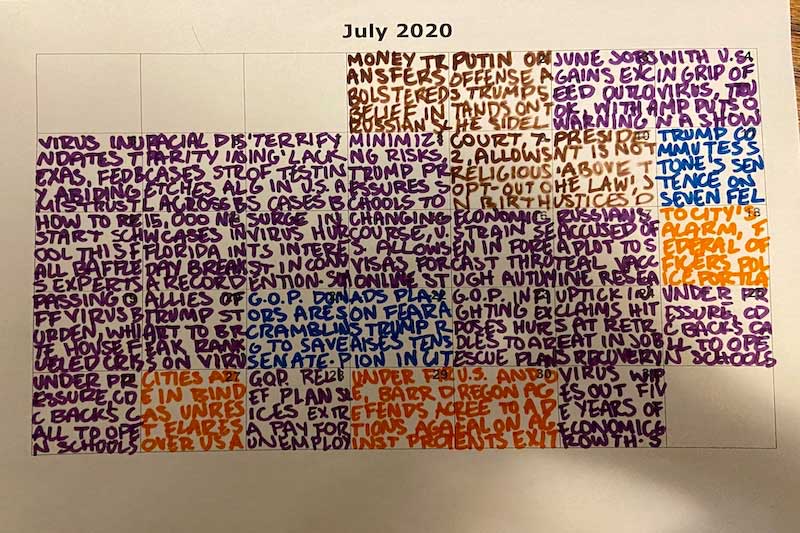 July 2020
MONEY TR
ANSFERS
BOLSTERED
BELIEF IN
RUSSIAN
PUTIN ON
OFFENSE A
S TRUMP S
TANDS ON T
HE SIDEL
JUNE JOBS
GAINS EXC
EED OUTLO
OK, WITH A
WARNING
WITH U.S.
IN GRIP OF
VIRUS, TRU
MP PUTS O
N A SHOW
VIRUS INU
NDATES T
EXAS, FED
BY ABIDING
MISTRUST
RACIAL DIS
PARITY IN
CASES STR
ETCHES AL
L ACROSS
'TERRIFY
ING' LACK
OF TESTIN
G IN U.S. A
S CASES B
MINIMIZ
ING RISKS,
TRUMP PR
ESSURES S
CHOOLS TO
COURT, 7-
2, ALLOWS
RELIGIOUS
OPT-OUT O
N BIRTH
PRESIDE
NT IS NOT
'ABOVE T
HE LAW,' J
USTICES D
TRUMP CO
MMUTES S
TONE'S SEN
TENCE ON
SEVEN FEL
HOW TO RE
START SCH
OOL THIS F
ALL BAFFLE
S EXPERTS
15,000 NE
W CASES IN
FLORIDA IN
DAY BREAK
A RECORD
SURGE IN
VIRUS HUR
TS INTERE
ST IN CONV
ENTION-S
CHANGING
COURSE, U.
S. ALLOWS
VISAS FOR
ONLINE ST
ECONOMIC
STRAIN SE
EN IN FORE
CAST THRO
UGH AUTUM
RUSSIANS
ACCUSED OF
A PLOT TO S
TEAL VACC
INE RESEA
TO CITY'S
ALARM, F
EDERAL OF
FICERS POL
ICE PORTLA
PASSING O
FF VIRUS B
URDEN, WHI
TE HOUSE F
UELED CRIS
ALLIES OF
TRUMP ST
ART TO BR
EAK RANK
ON VIRU
G.O.P. DON
ORS ARE S
CRAMBLIN
G TO SAVE
SENATE-
ADS PLA
ON FEAR A
S TRUMP R
AISES TENS
ION IN CIT
G.O.P. INFI
GHTING EX
POSES HUR
DLES TO A
RESCUE PLAN
UPTICK IN
CLAIMS HIT
S AT RETR
EAT IN JOB
S RECOVERY
UNDER PR
ESSURE, CD
C BACKS CA
LL TO OPE
N SCHOOLS
UNDER PR
ESSURE, CD
C BACKS C
ALL TO OPE
N SCHOOLS
CITIES AR
E IN BIND
AS UNRES
T FLARES
OVER US A
GOP REL
EF PLAN SL
ICES EXTR
A PAY FOR
UNEMPLOY
UNDER FIR
E, BARR D
EFENDS AC
TIONS AGA
INST PROT
U.S. AND O
REGON AG
REE TO AD
EAL ON AG
ENTS EXIT
VIRUS WIP
ES OUT FIV
E YEARS OF
ECONOMIC G
ROWTH-S